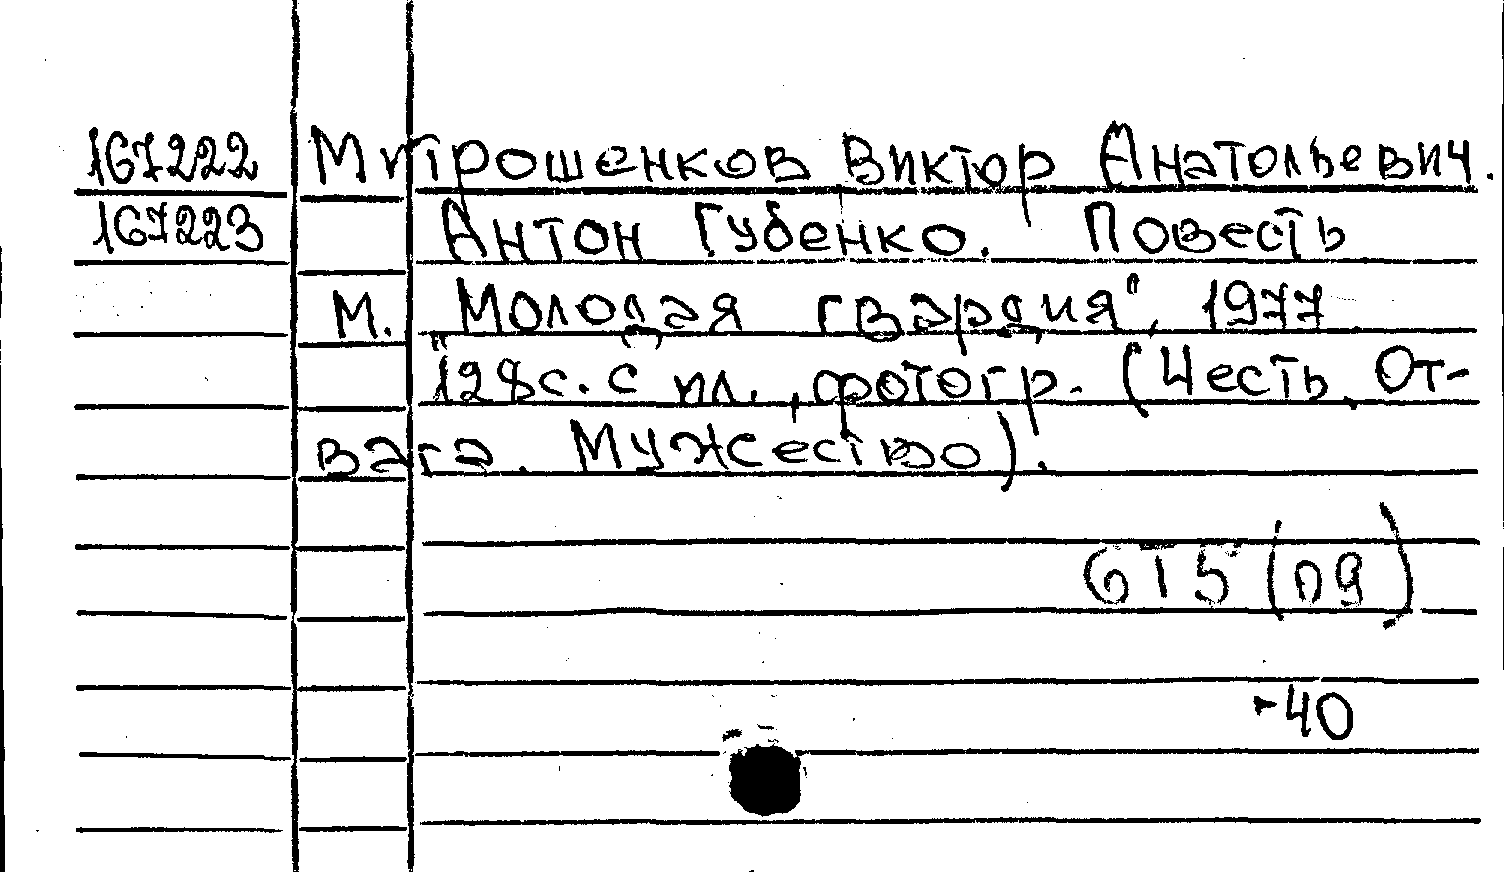 167222 Митрошенков Виктор Анатольевич.
167223 Антон Губенко. Повесть
М. "Молодая гвардия", 1977
128с. с ил., фотогр. (Честь, От-
вага. Мужество).
6Т5(09)
-40